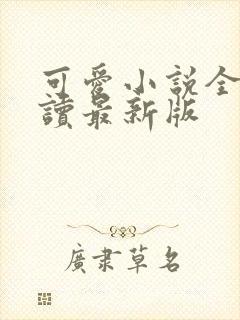 可愛小說全
讀最新版
廣肅草名